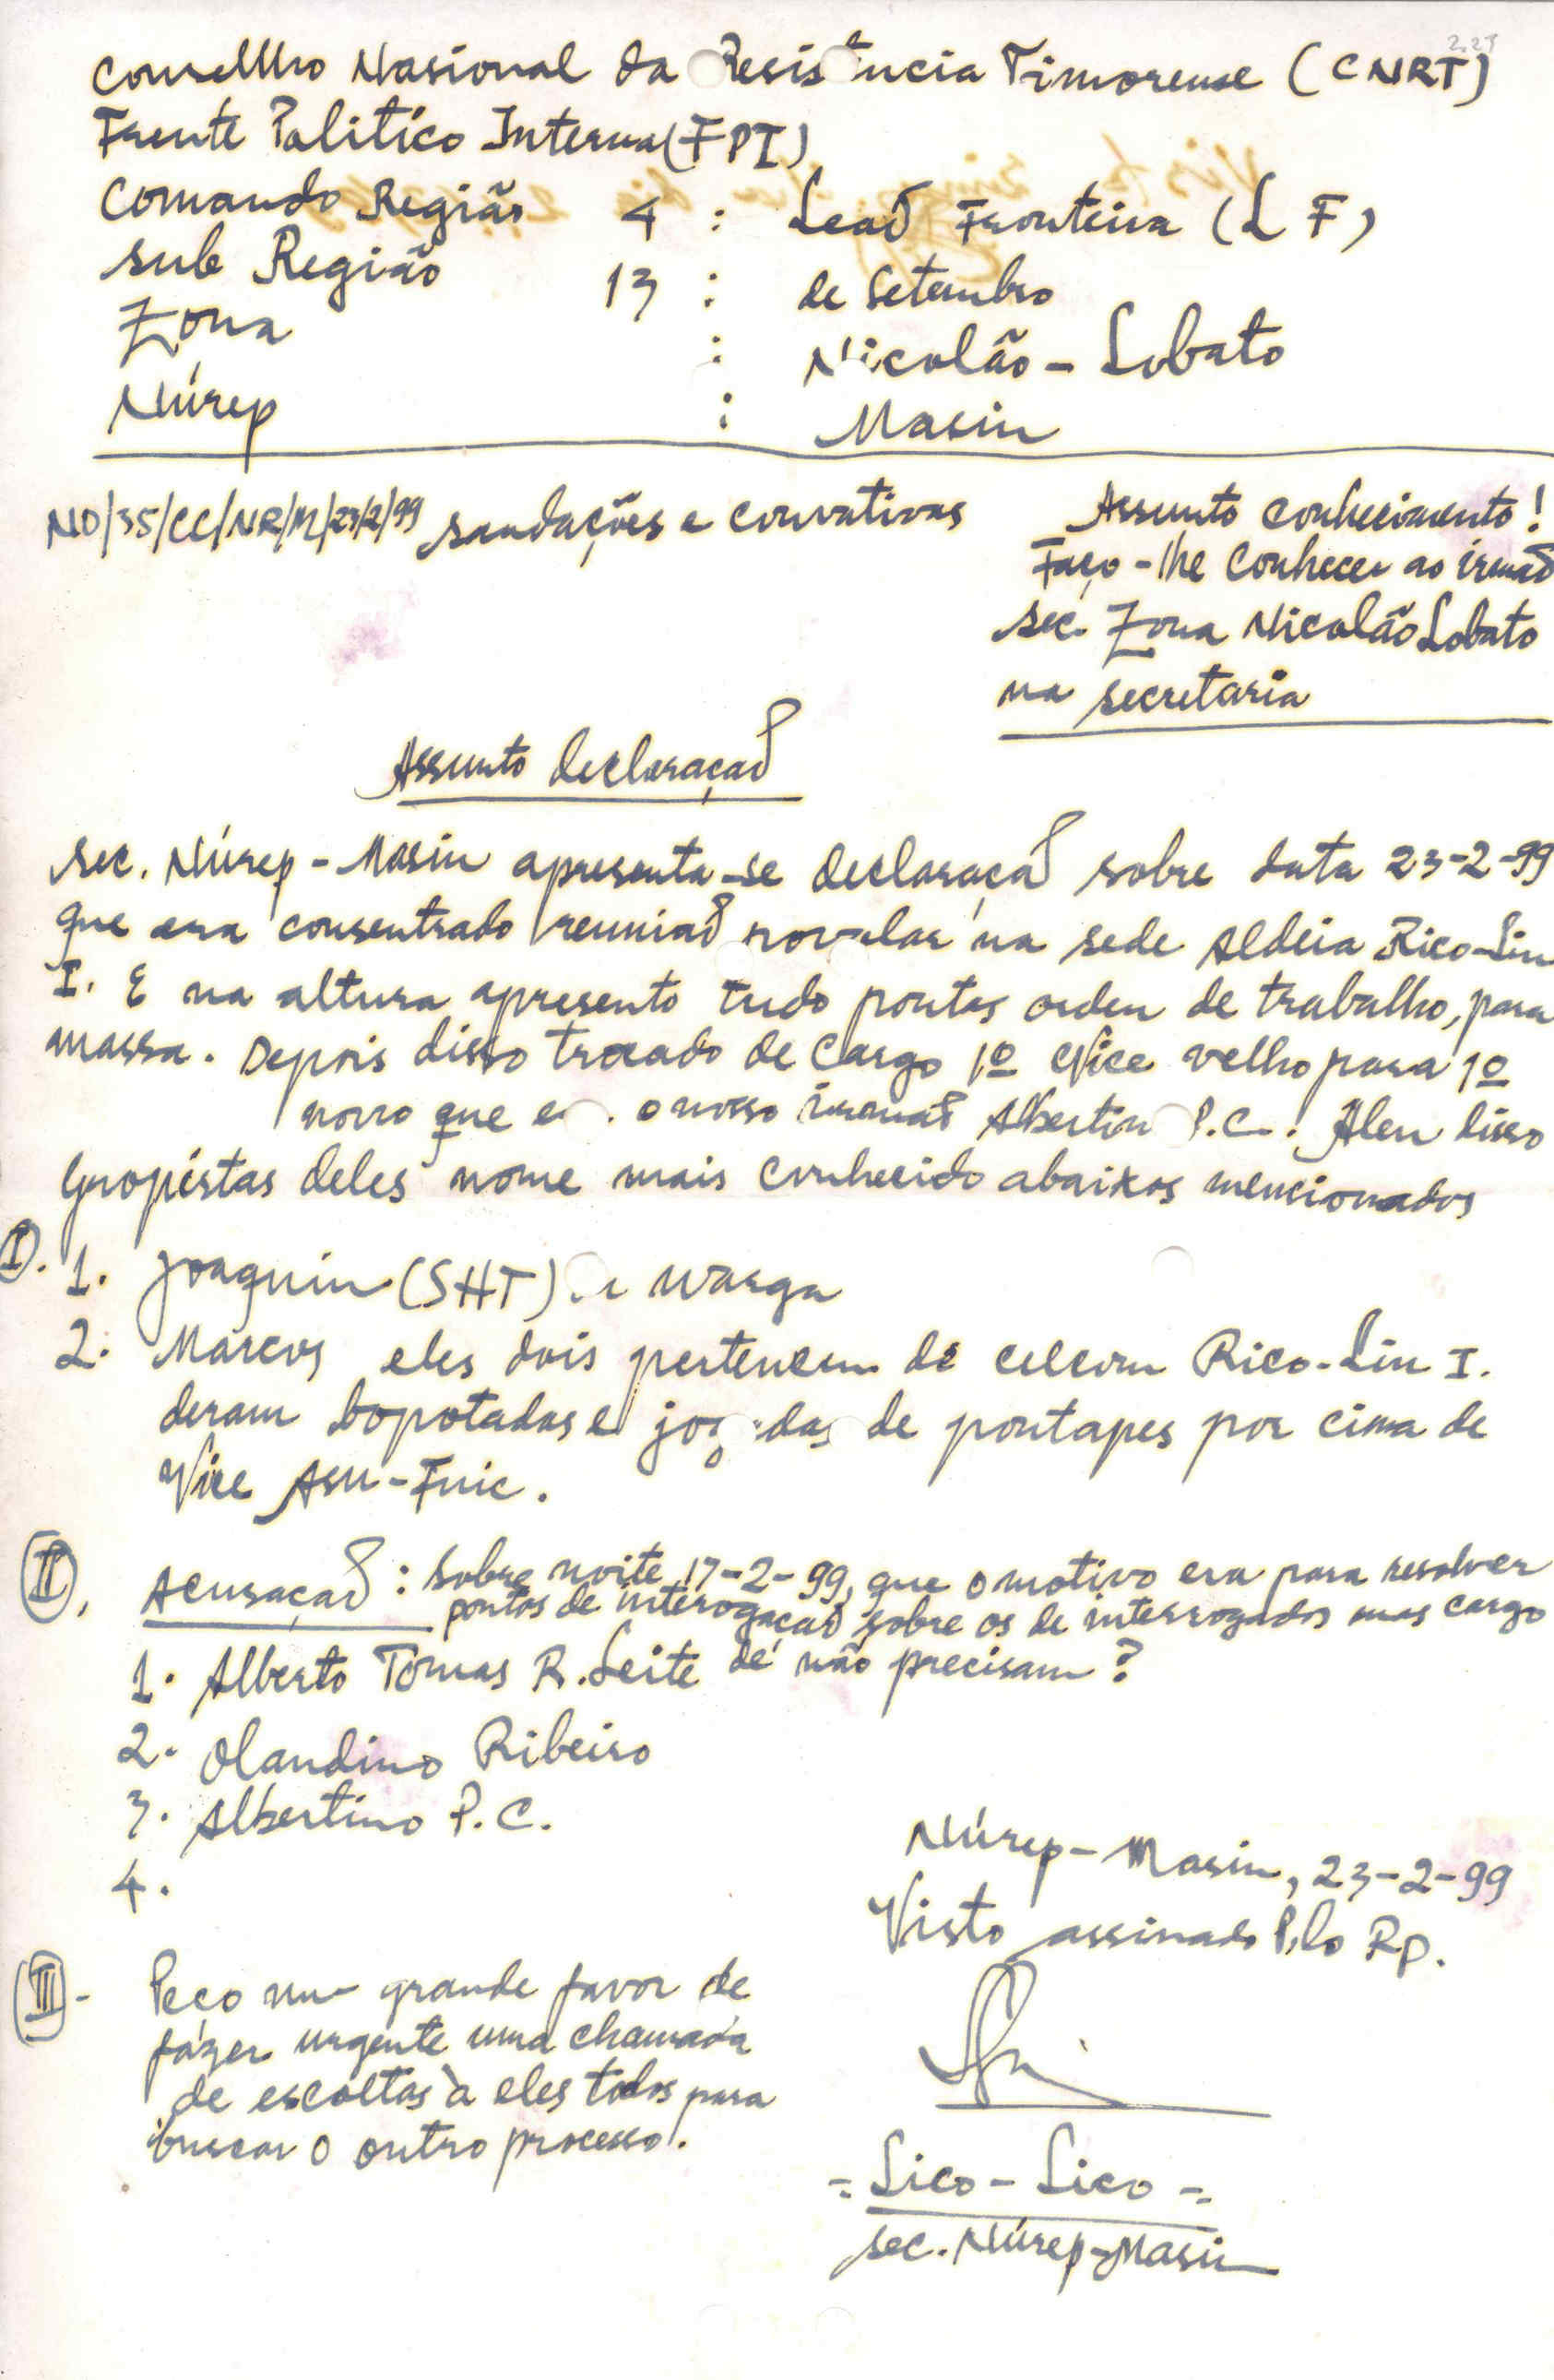 Consellho Nasional da Resistência Timorense (CNRT)
Frente Politíco Interna (FPI)
Comando Região 4 : Leaõ Fronteira (L F)
Sub Região 13 : de Setembro
Zona : Nicolão - Lobato
Núrep : Masin
NO/35/CC/NR/M/23/2/99 saudações e
Assunto Conhecimento!
Faço-lhe Conhecer ao irmaõ
Sec. Zona Nicolão Lobato
na secretaria
Assunto declaraçaõ
Sec. Núrep - Masin apresenta-se declaraçaõ sobre data 23-2-99
que era consentrado reuniaõ na sede Aldeia Rico-Lin
I. E na altura apresento tudo pontos orden de trabalho, para
massa. Depois disso trocado de Cargo 1º Vice velho para 1º
novo que o nosso Albertin P.C. Alen disso
propóstas deles nome mais conhecido abaixos mencionados
I. 1. Joaquin (SHT) warga
2. Marcos eles dois pertencem de celcom Rico-Lin I.
deram bopotadas e de pontapes por cima de
Vice Asu-Fuic.
II. Acusaçaõ : Sobre noite 17-2-99, que o motivo era para resolver
pontos de interogaçaõ sobre os de interrogados mas cargo
1. Alberto Tomas R. Leite de não precisam?
2. Olandino Ribeiro
3. Albertino P.C.
4.
Núrep - Masin, 23-2-99
Visto assinado Pelo Rp.
III - Peço um grande favor de
fázer urgente uma chamada
de escoltas à eles todos para
buscar o outro processo.
= Lico - Lico =
Sec. Núrep-Masin